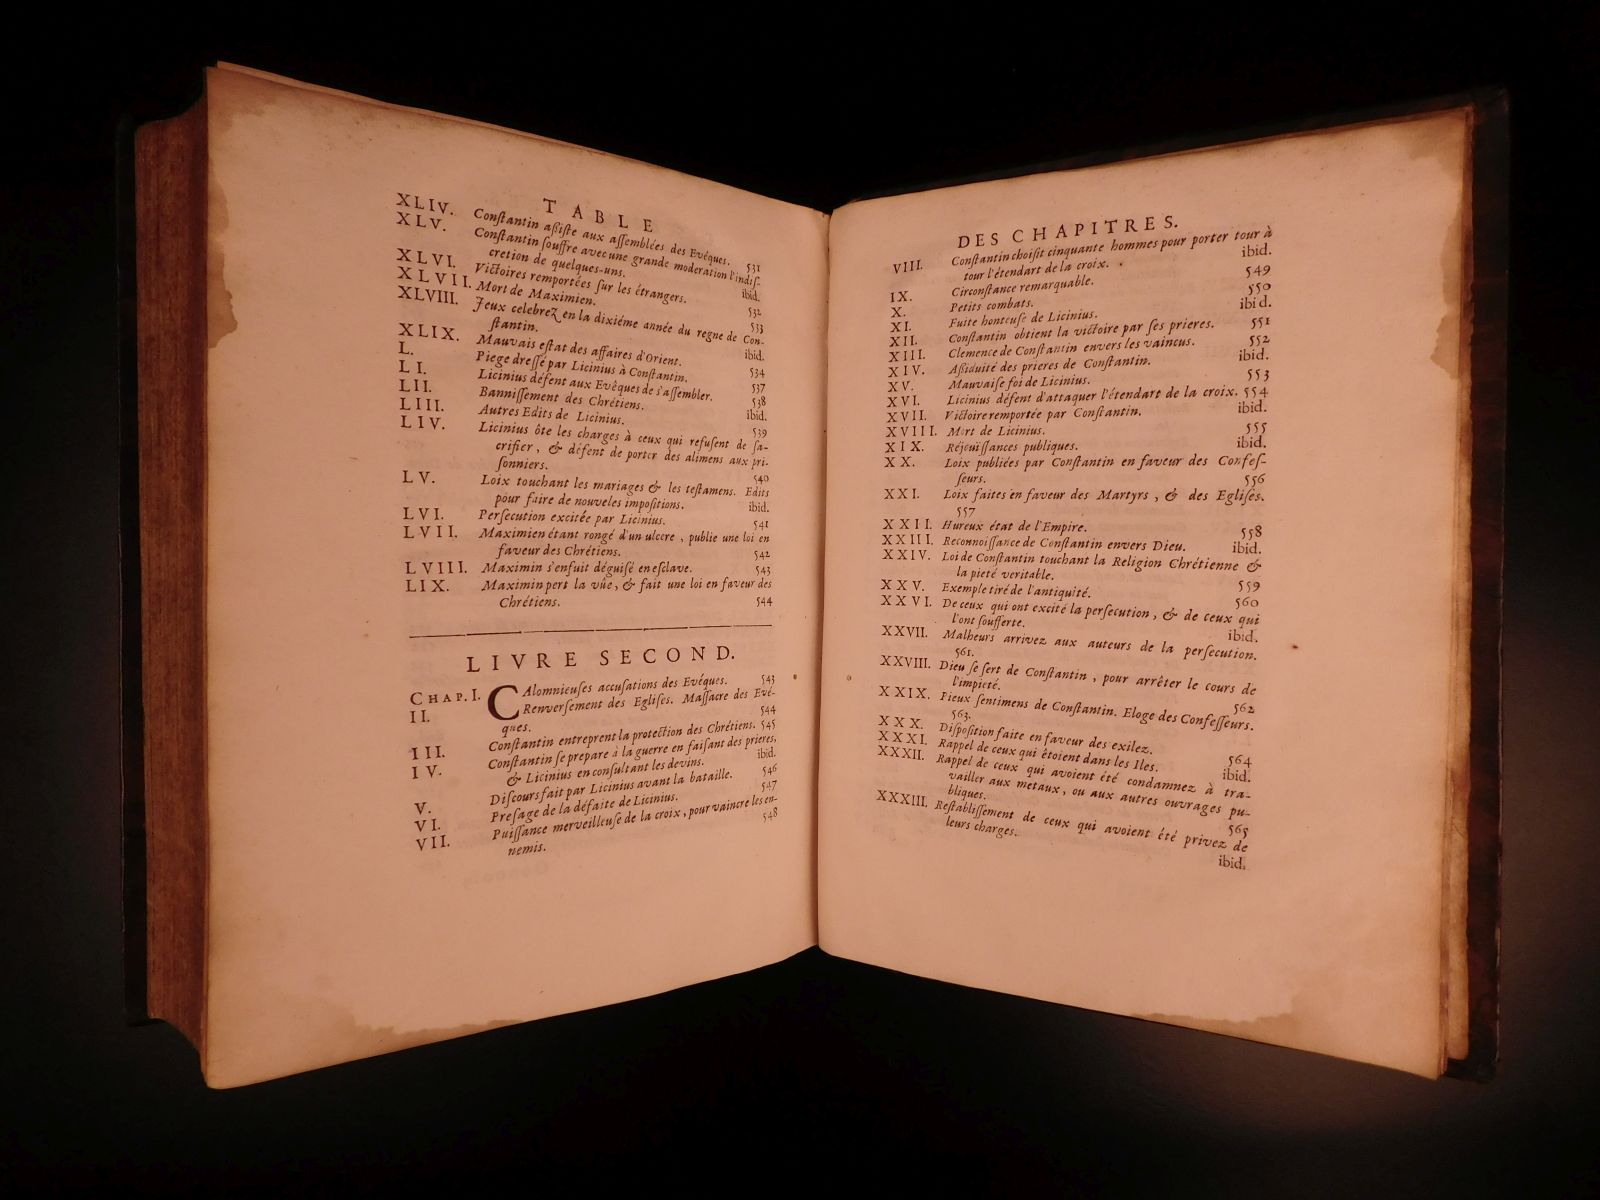 TABLE
XLIV. Conſtantin aſſiſte aux aſſemblées des Evêques. 531
XLV. Conſtantin ſouffre avec une grande moderation l'indiſ-
cretion de quelques-uns. ibid.
XLVI. Victoires remportées ſur les étrangers. 532
XLVII. Mort de Maximien. 533
XLVIII. Jeux celebrez en la dixiéme année du regne de Con-
ſtantin. ibid.
XLIX. Mauvais eſtat des affaires d'Orient. 534
L. Piege dreſſé par Licinius à Conſtantin. 537
LI. Licinius défent aux Evêques de s'aſſembler. 538
LII. Banniſſement des Chrétiens. ibid.
LIII. Autres Edits de Licinius. 539
LIV. Licinius ôte les charges à ceux qui refuſent de ſa-
crifier, & défent de porter des alimens aux pri-
ſonniers. 540
LV. Loix touchant les mariages & les teſtamens. Edits
pour faire de nouveles impoſitions. ibid.
LVI. Perſecution excitée par Licinius. 541
LVII. Maximien étant rongé d'un ulcere, publie une loi en
faveur des Chrétiens. 542
LVIII. Maximin s'enfuit déguiſé en eſclave. 543
LIX. Maximin pert la vûe, & fait une loi en faveur des
Chrétiens. 544
LIVRE SECOND.
CHAP. I. CAlomnieuſes accuſations des Evêques. 543
II. Renverſement des Egliſes. Maſſacre des Evê-
ques. 544
III. Conſtantin entreprent la protection des Chrétiens. 545
IV. Conſtantin ſe prepare à la guerre en faiſant des prieres,
& Licinius en conſultant les devins. ibid.
V. Diſcours fait par Licinius avant la bataille. 546
VI. Preſage de la défaite de Licinius. 547
VII. Puiſſance merveilleuſe de la croix, pour vaincre les en-
nemis. 548
DES CHAPITRES.
VIII. Conſtantin choiſit cinquante hommes pour porter tour à
tour l'étendart de la croix. ibid.
IX. Circonſtance remarquable. 549
X. Petits combats. 550
XI. Fuite honteuſe de Licinius. ibid.
XII. Conſtantin obtient la victoire par ſes prieres. 551
XIII. Clemence de Conſtantin envers les vaincus. 552
XIV. Aſſiduité des prieres de Conſtantin. ibid.
XV. Mauvaiſe foi de Licinius. 553
XVI. Licinius défent d'attaquer l'étendart de la croix. 554
XVII. Victoire remportée par Conſtantin. ibid.
XVIII. Mort de Licinius. 555
XIX. Réjouiſſances publiques. ibid.
XX. Loix publiées par Conſtantin en faveur des Confeſ-
ſeurs. 556
XXI. Loix faites en faveur des Martyrs, & des Egliſes.
557
XXII. Hureux état de l'Empire. 558
XXIII. Reconnoiſſance de Conſtantin envers Dieu. ibid.
XXIV. Loi de Conſtantin touchant la Religion Chrétienne &
la pieté veritable. 559
XXV. Exemple tiré de l'antiquité. 560
XXVI. De ceux qui ont excité la perſecution, & de ceux qui
l'ont ſoufferte. ibid.
XXVII. Malheurs arrivez aux auteurs de la perſecution.
561.
XXVIII. Dieu ſe ſert de Conſtantin, pour arrêter le cours de
l'impieté. 562
XXIX. Pieux ſentimens de Conſtantin. Eloge des Confeſſeurs.
563.
XXX. Diſpoſition faite en faveur des exilez. 564
XXXI. Rappel de ceux qui étoient dans les Iles. ibid.
XXXII. Rappel de ceux qui avoient été condamnez à tra-
vailler aux metaux, ou aux autres ouvrages pu-
bliques. 565
XXXIII. Reſtabliſſement de ceux qui avoient été privez de
leurs charges. ibid.